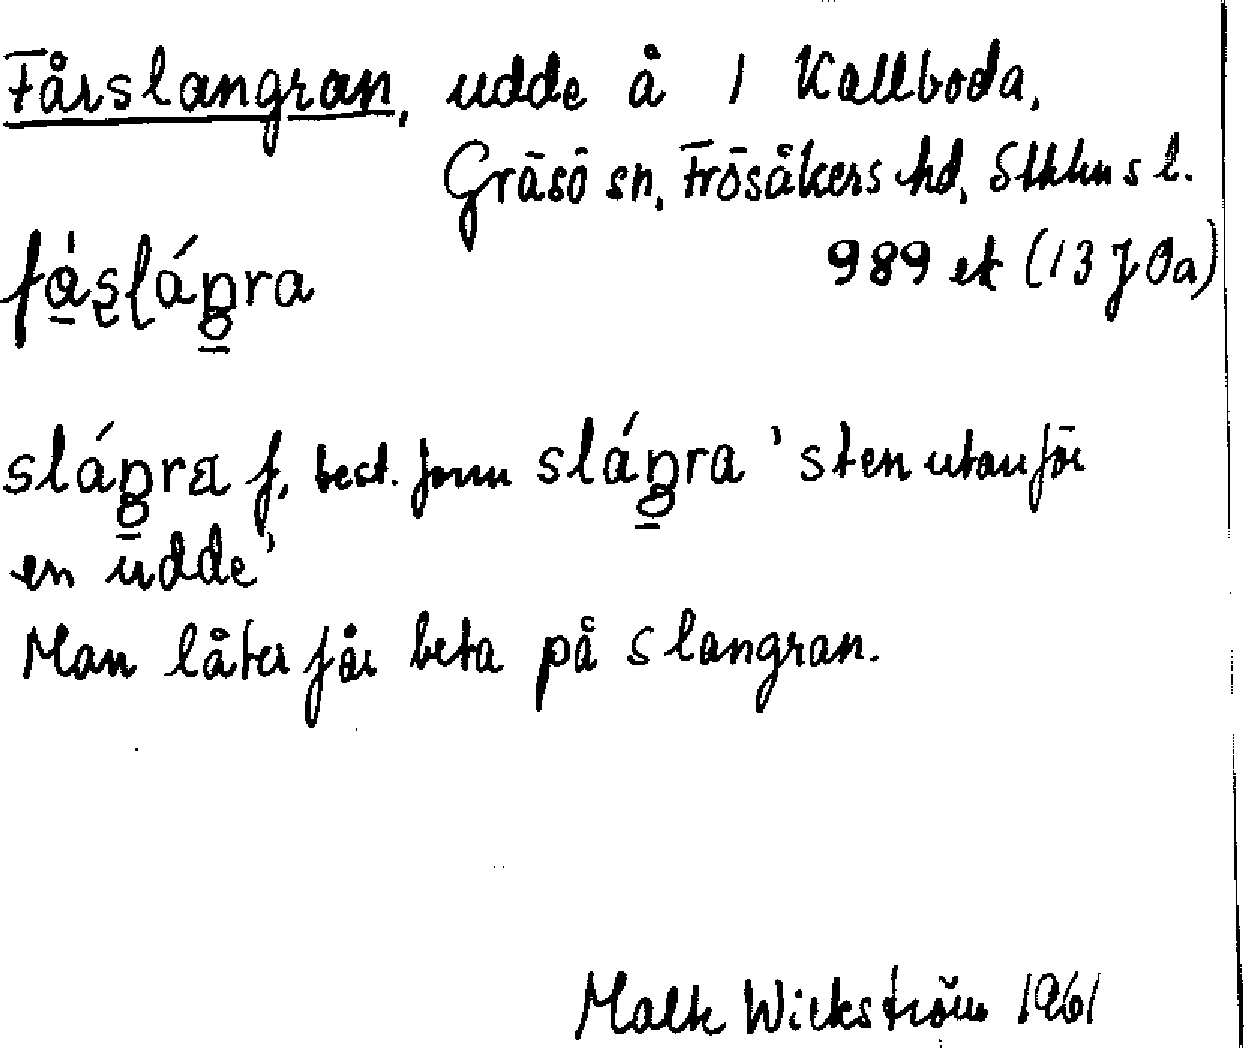 Fårslangran, udde å 1 Kallboda,
Gräsö sn, Frösåkers hd, Sthlms l.
989 ek (13 J 0a)
få̱ʂɭáŋ̱ra
sláŋ̱ra f, best. form sláŋ̱ra 'sten utanför
en udde'
Man låter får beta på slangran.
Malte Wickström 1961